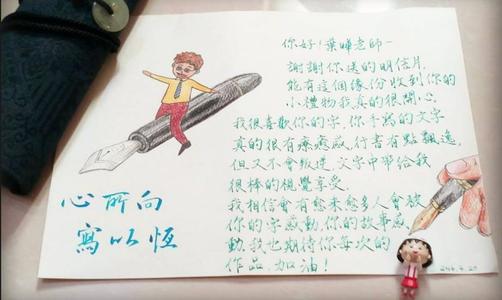 你好!葉曄老師~
謝謝你送的明信片,
能有這個緣份收到你的
小禮物我真的很開心。
我很喜歡你的字,你手寫的文字
真的很有療癒感,行書有點飄逸,
但又不會敷衍,文字中帶給我
很棒的視覺享受。
我相信會有愈來愈多人會被
你的字感動,你的故事感
動,我也期待你每次的
作品,加油!
心所向
寫以恆